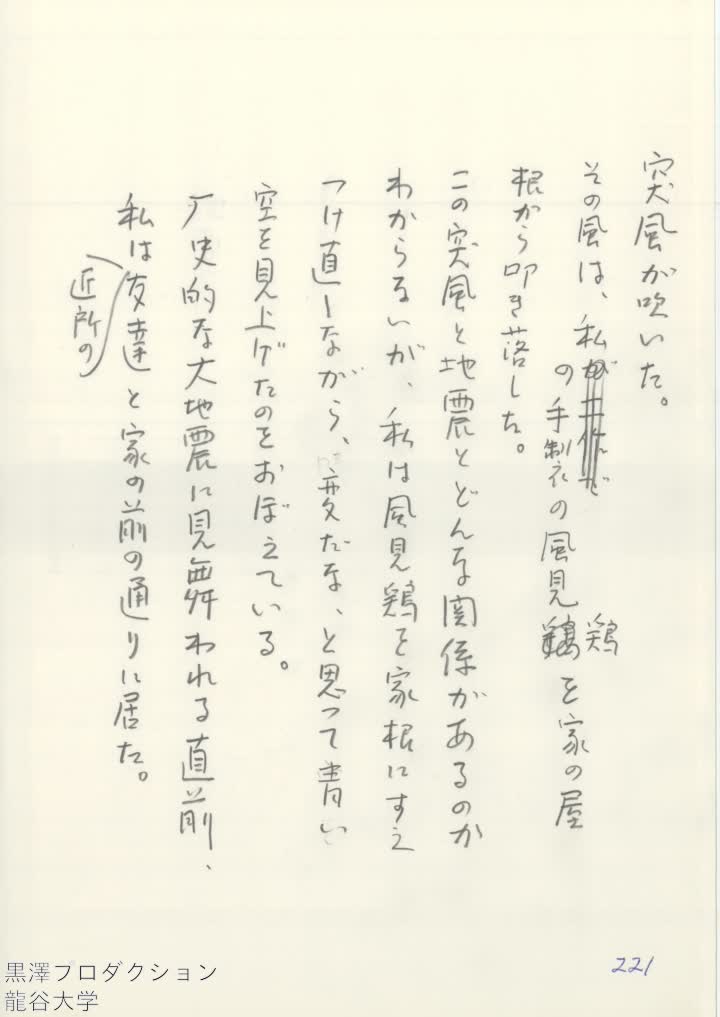 突風が吹いた。
その風は、私の手製の風見鶏を家の屋
根から叩き落した。
この突風と地震とどんな関係があるのか
わからないが、私は風見鶏を家根にすえ
つけ直しながら、変だな、と思って青い
空を見上げたのをおぼえている。
歴史的な大地震に見舞われる直前、
私は近所の友達と家の前の通りに居た。
221
黒澤プロダクション
龍谷大学